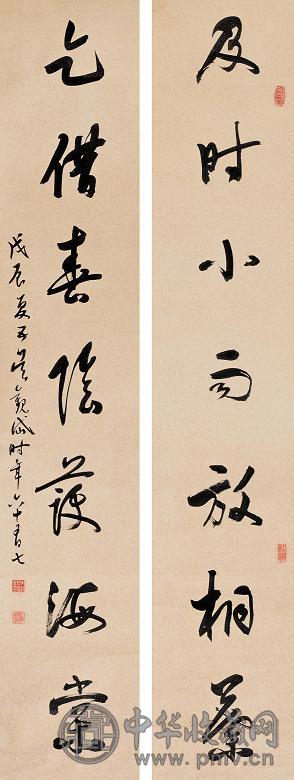 及时小雨放桐葉
乞借春陰護海棠
戊辰夏五吴觀岱时年六十有七
中华收藏网
www.pmv.cn